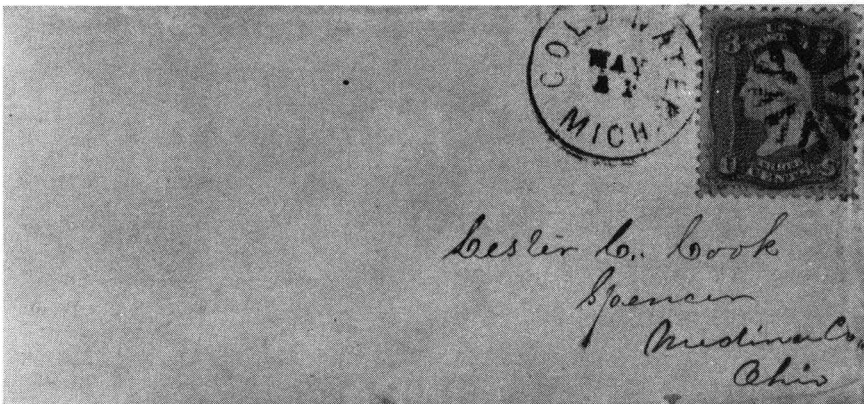 COLD WATER
MAY
MICH.
3 U.S. 3
Lester C. Cook
Spencer
Medina Co,
Ohio